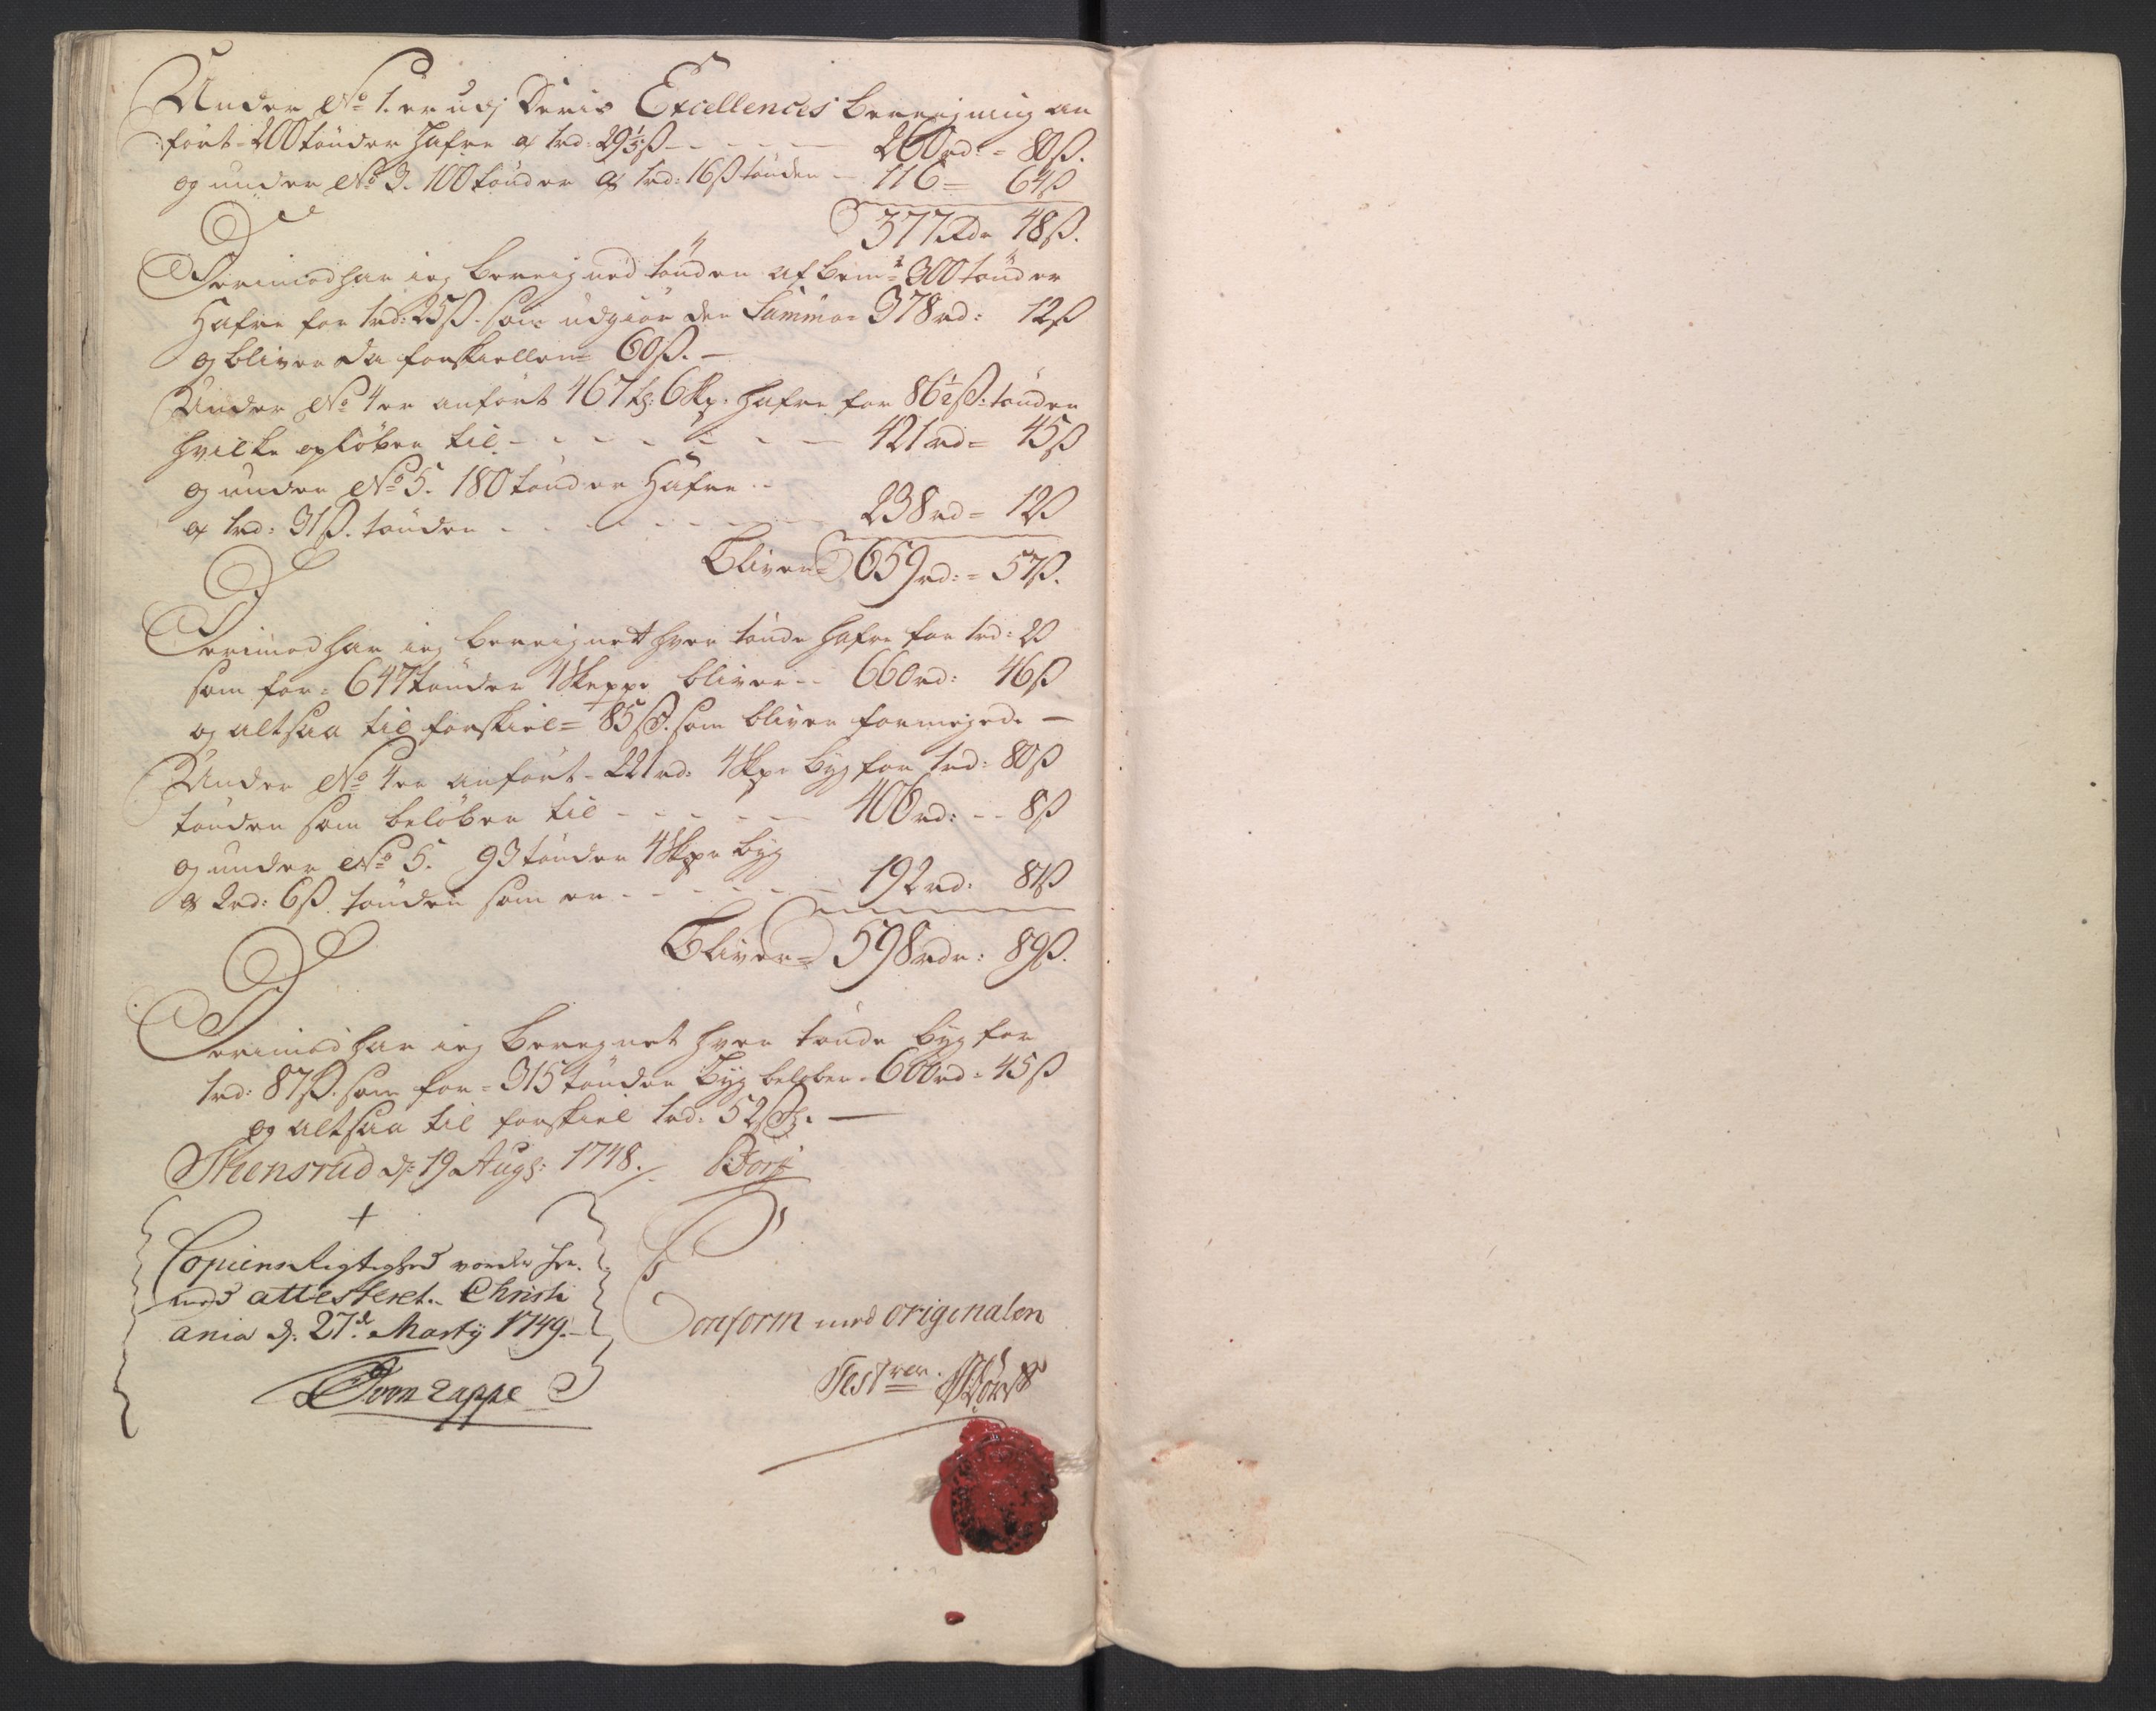 Under No 1. er udj Deris Excellences bereigning an
ført = 200 tønder Hafre a 1rd: 29⅕ß - - - 260rd: = 80ß.
og under No 3. 100 tønder a 1rd: 16ß tønden - 116 = 64ß
377Rdr 48ß.
Derimod har ieg bereigned tønden af bemte 300 tønder
Hafre for 1rd: 25ß. som udgiør den Summa = 378rd: 12ß
og bliver da forskiellen = 60ß. -
Under No 4 er anført 467 tr: 6 skp: Hafre for 86½ß: tønden
hvilke opløber til - - - - - - 421rd = 45ß
og under No 5. 180 tønder Hafre -
a 1rd: 31ß. tønden - - - - - 238rd = 12ß
Bliver = 659rd: = 57ß.
Derimod har ieg bereignett hver tønde Hafre for 1rd: 2ß
som for = 647 tønder 4 Skeppe bliver - 660rd: 46ß
og altsaa til forskiel = 85ß. som bliver formegede -
Under No 4 er anført - 221rd: 4 skpr byg for 1rd: 80ß
tønden som beløber til - - - - - 406rd: - - 8ß
og under No 5. 93 tønder 4 skpr byg
a 2rd: 6ß tønden som er - - - - 192rd: 81ß
Bliver = 598rdr: 89ß.
Derimod har ieg beregnet hver tønde byg for
1rd: 87ß. som for = 315 tønder Byg beløber = 600rd = 45ß
og altsaa til forskiel 1rd: 52ß. -
Stensrud d: 19 Augs: 1748. /. Borf
+
Copiens Rigtighed vorder her-
med attesteret. Christi
ania d: 27d. Martij 1749. -
Conform med originalen
Testrer.